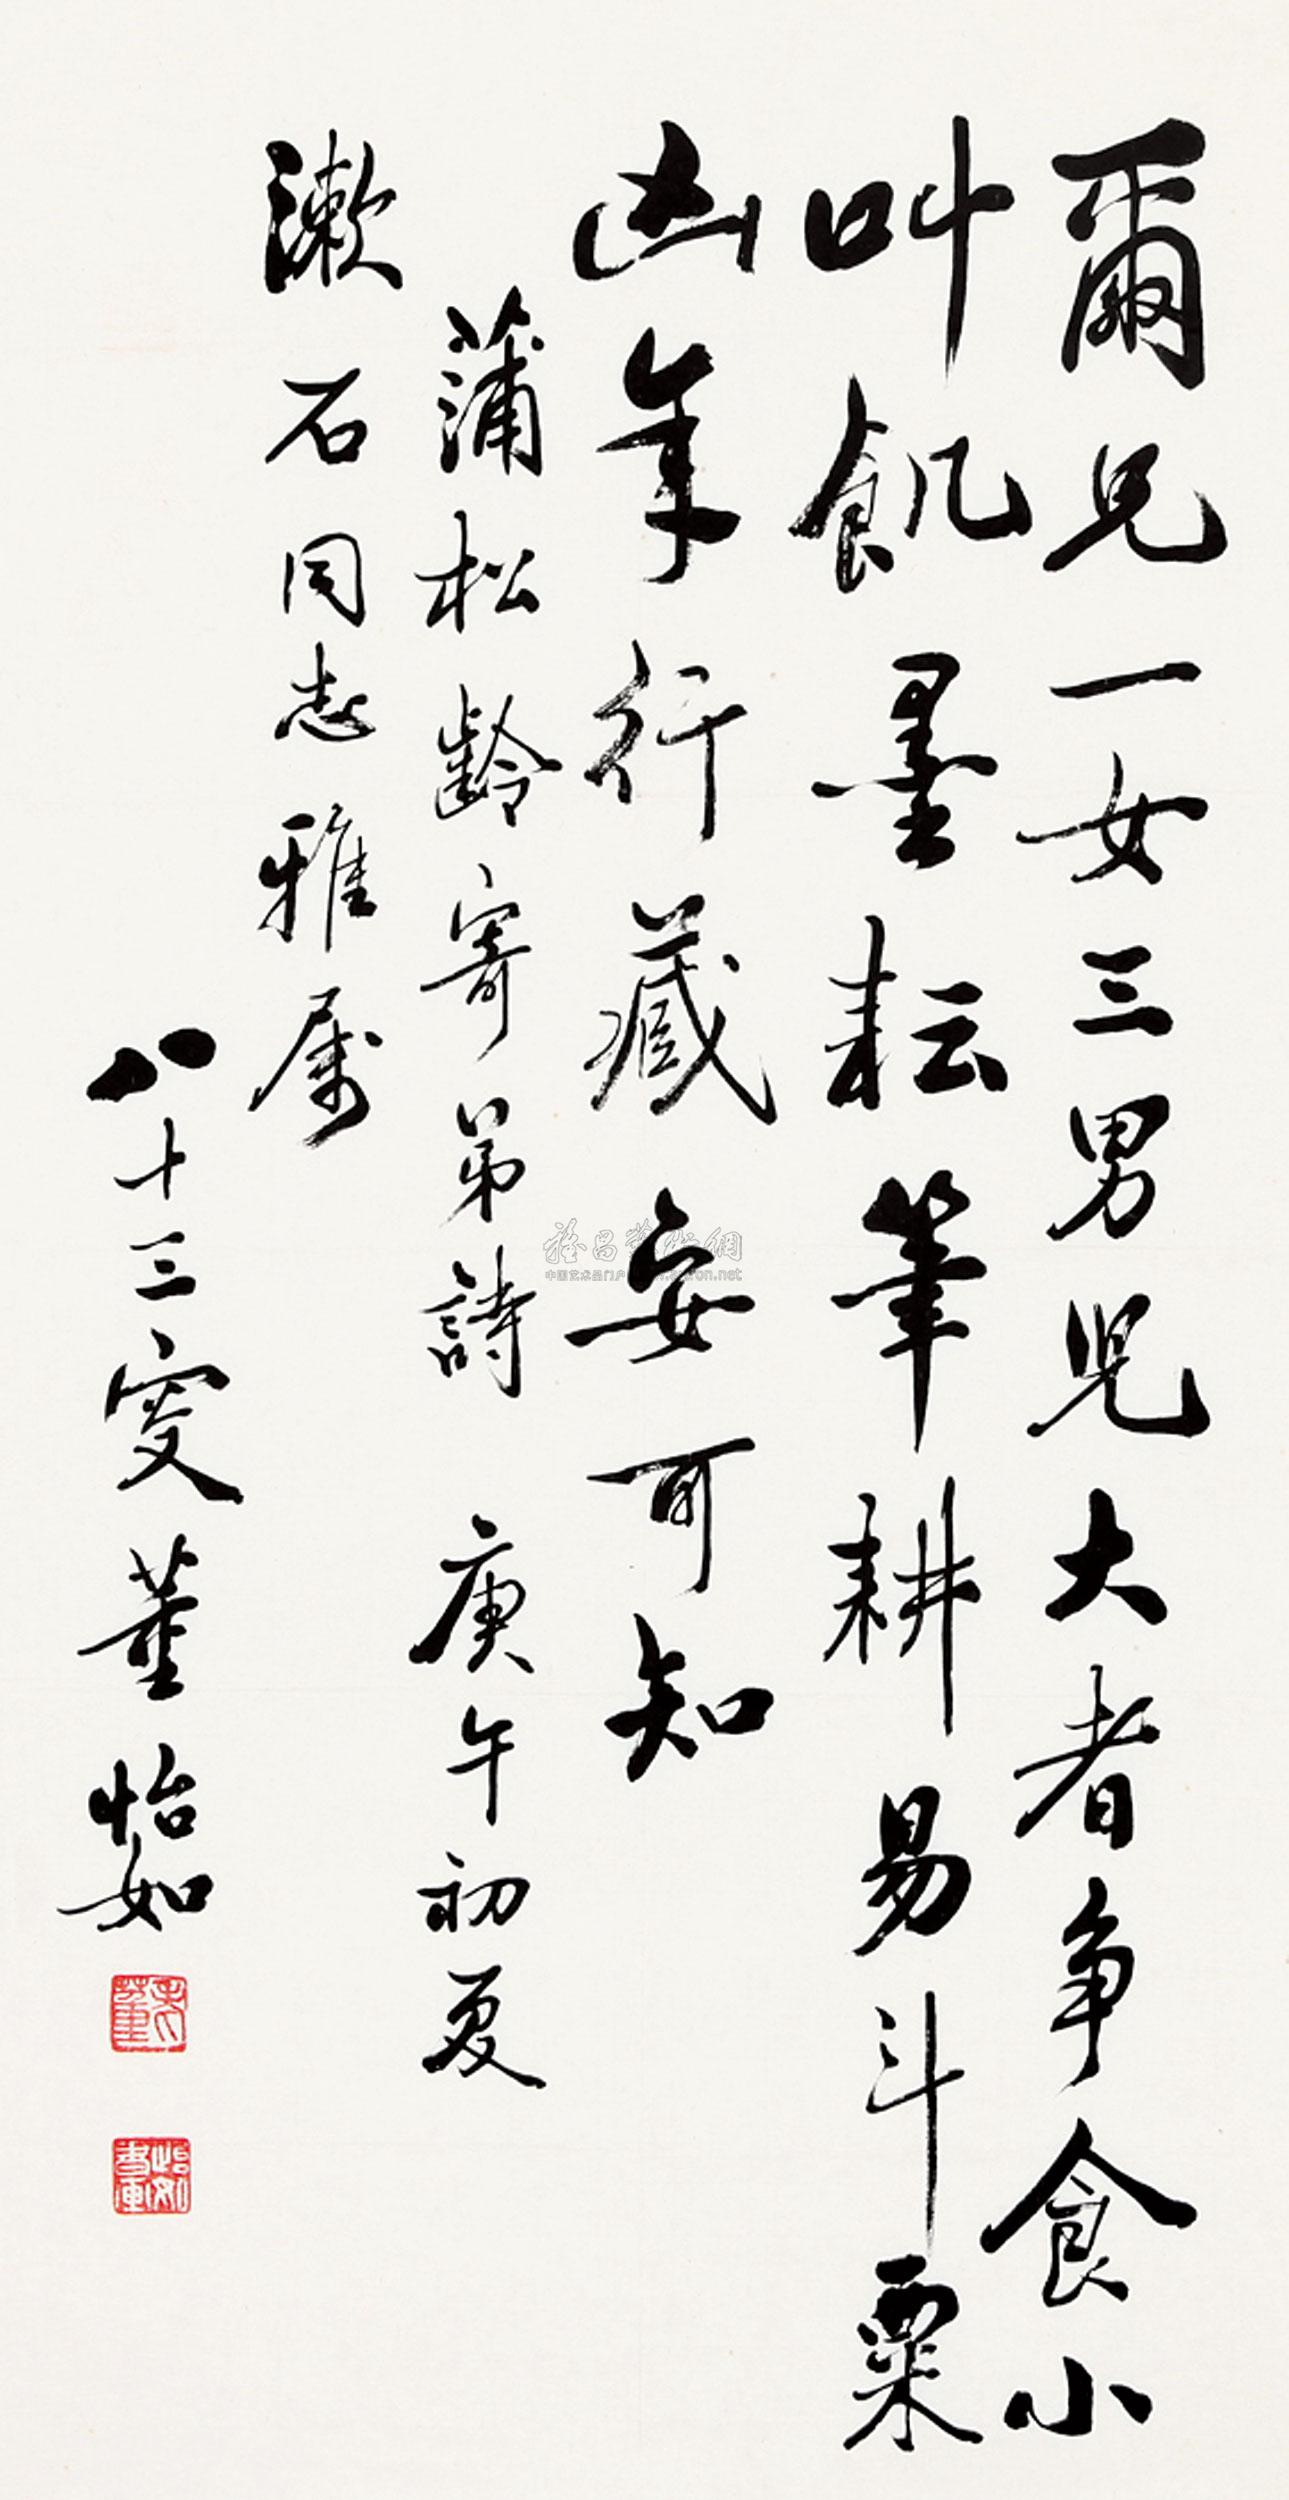 爾兄一女三男兒大者争食小
叫飢墨耘筆耕易斗粟
凶年行藏安可知
蒲松齡寄弟詩 庚午初夏
漱石同志雅属
八十三叟董怡如
雅昌藝術網